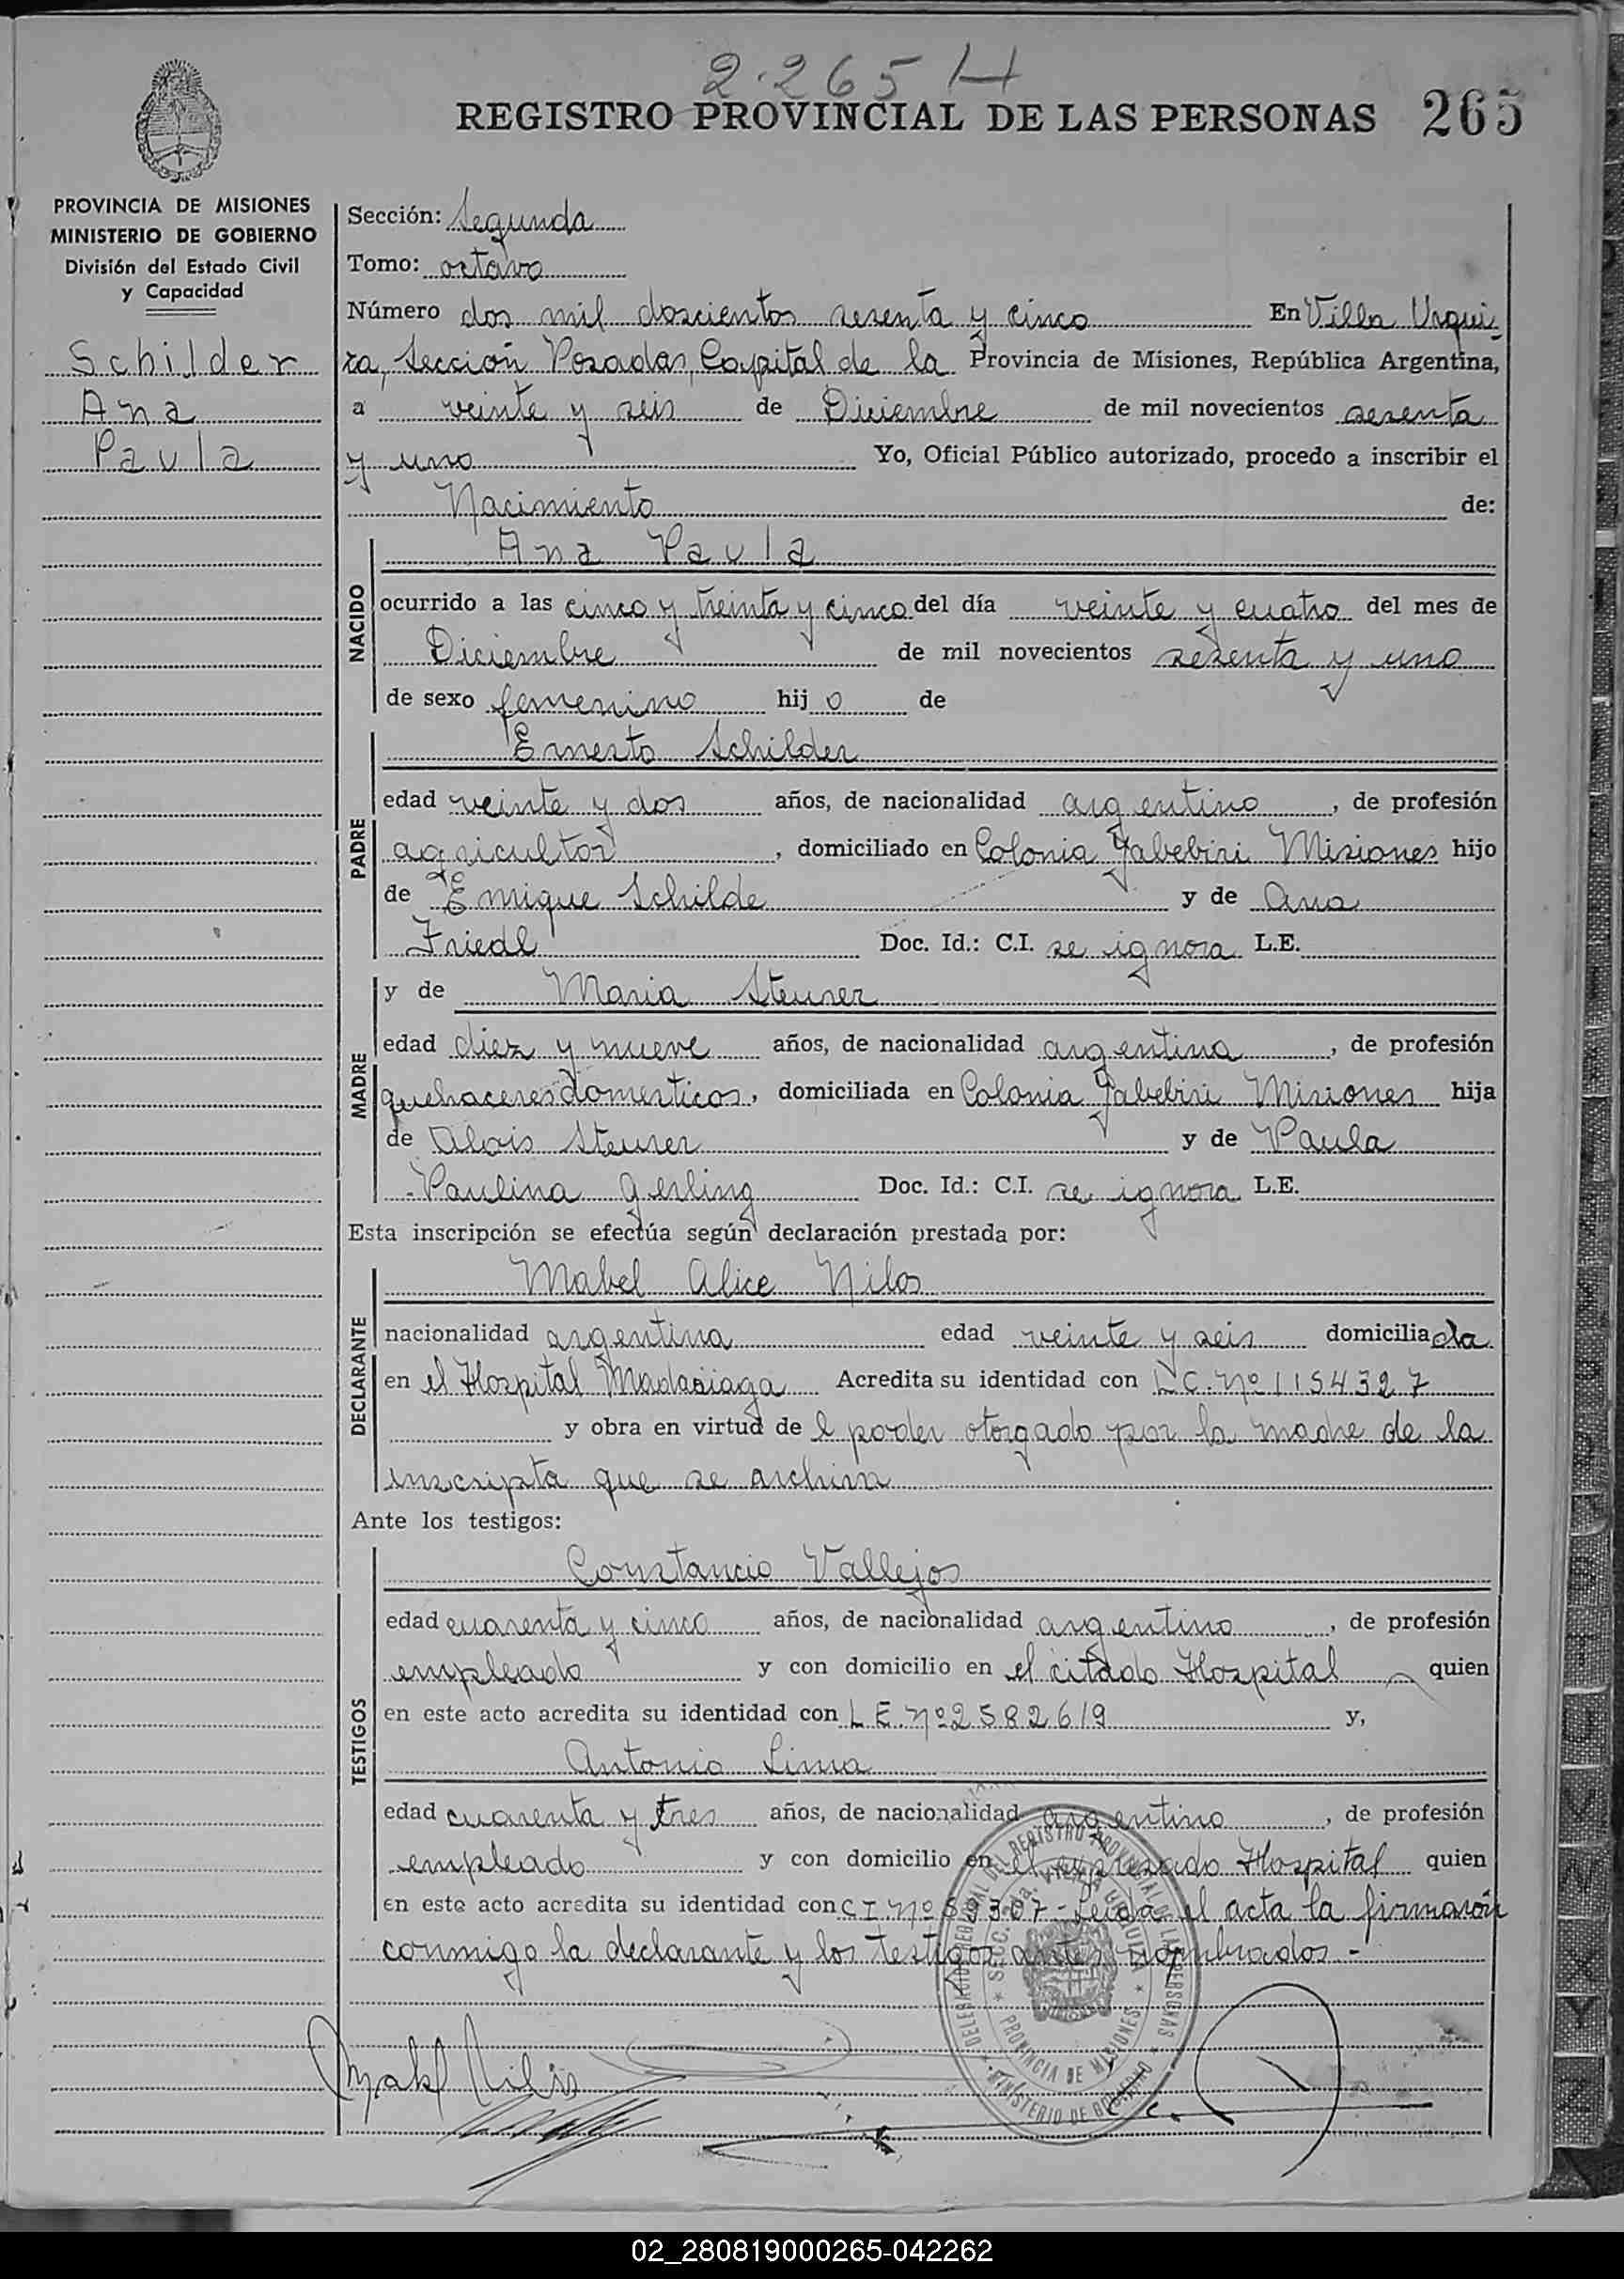 2.265 H
REGISTRO PROVINCIAL DE LAS PERSONAS 265
PROVINCIA DE MISIONES
MINISTERIO DE GOBIERNO
División del Estado Civil
y Capacidad
Schilder
Ana
Paula
Sección: Segunda
Tomo: octavo
Número dos mil doscientos sesenta y cinco En Villa Urqui-
za, Sección Posadas, Capital de la Provincia de Misiones, República Argentina,
a veinte y seis de Diciembre de mil novecientos sesenta
y uno Yo, Oficial Público autorizado, procedo a inscribir el
Nacimiento de:
NACIDO
Ana Paula
ocurrido a las cinco y treinta y cinco del día veinte y cuatro del mes de
Diciembre de mil novecientos sesenta y uno
de sexo femenino hij o de
PADRE
Ernesto Schilder
edad veinte y dos años, de nacionalidad argentino, de profesión
agricultor, domiciliado en Colonia Yabebiri Misiones hijo
de Enrique Schilde y de Ana
Friedl Doc. Id.: C.I. se ignora L.E.
MADRE
y de Maria Steurer
edad diez y nueve años, de nacionalidad argentina, de profesión
quehaceres domesticos, domiciliada en Colonia Yabebiri Misiones hija
de Alois Steurer y de Paula
Paulina Gerling Doc. Id.: C.I. se ignora L.E.
Esta inscripción se efectúa según declaración prestada por:
DECLARANTE
Mabel Alice Nilos
nacionalidad argentina edad veinte y seis domiciliada
en el Hospital Madariaga Acredita su identidad con L C. Nº 1154327
y obra en virtud de l poder otorgado por la madre de la
inscripta que se archiva
Ante los testigos:
TESTIGOS
Constancio Vallejos
edad cuarenta y cinco años, de nacionalidad argentino, de profesión
empleado y con domicilio en el citado Hospital quien
en este acto acredita su identidad con L E. Nº 2582619 y,
Antonio Lima
edad cuarenta y tres años, de nacionalidad argentino, de profesión
empleado y con domicilio en el expresado Hospital quien
en este acto acredita su identidad con C I Nº Leida el acta la firmaron
conmigo la declarante y los testigos antes nombrados.-
DELEGACION REGIONAL DEL REGISTRO PROVINCIAL DE LAS PERSONAS
MINISTERIO DE GOBIERNO
VILLA URQUIZA
PROVINCIA DE MISIONES
Mabel Nilos
02_280819000265-042262